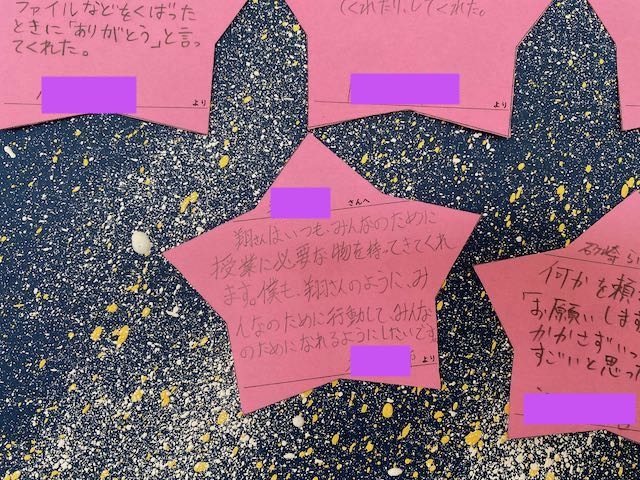 ファイルなどをくばった
ときに「ありがとう」と言っ
てくれた。
より
くれたり、してくれた。
より
さんへ
翔さんはいつも、みんなのために
授業に必要な物を持ってきてくれ
ます。僕も、翔さんのように、み
んなのために行動して、みんな
のためになれるようにしたいです
より
何かを頼
「お願いします
かかさずいっ
すごいと思った